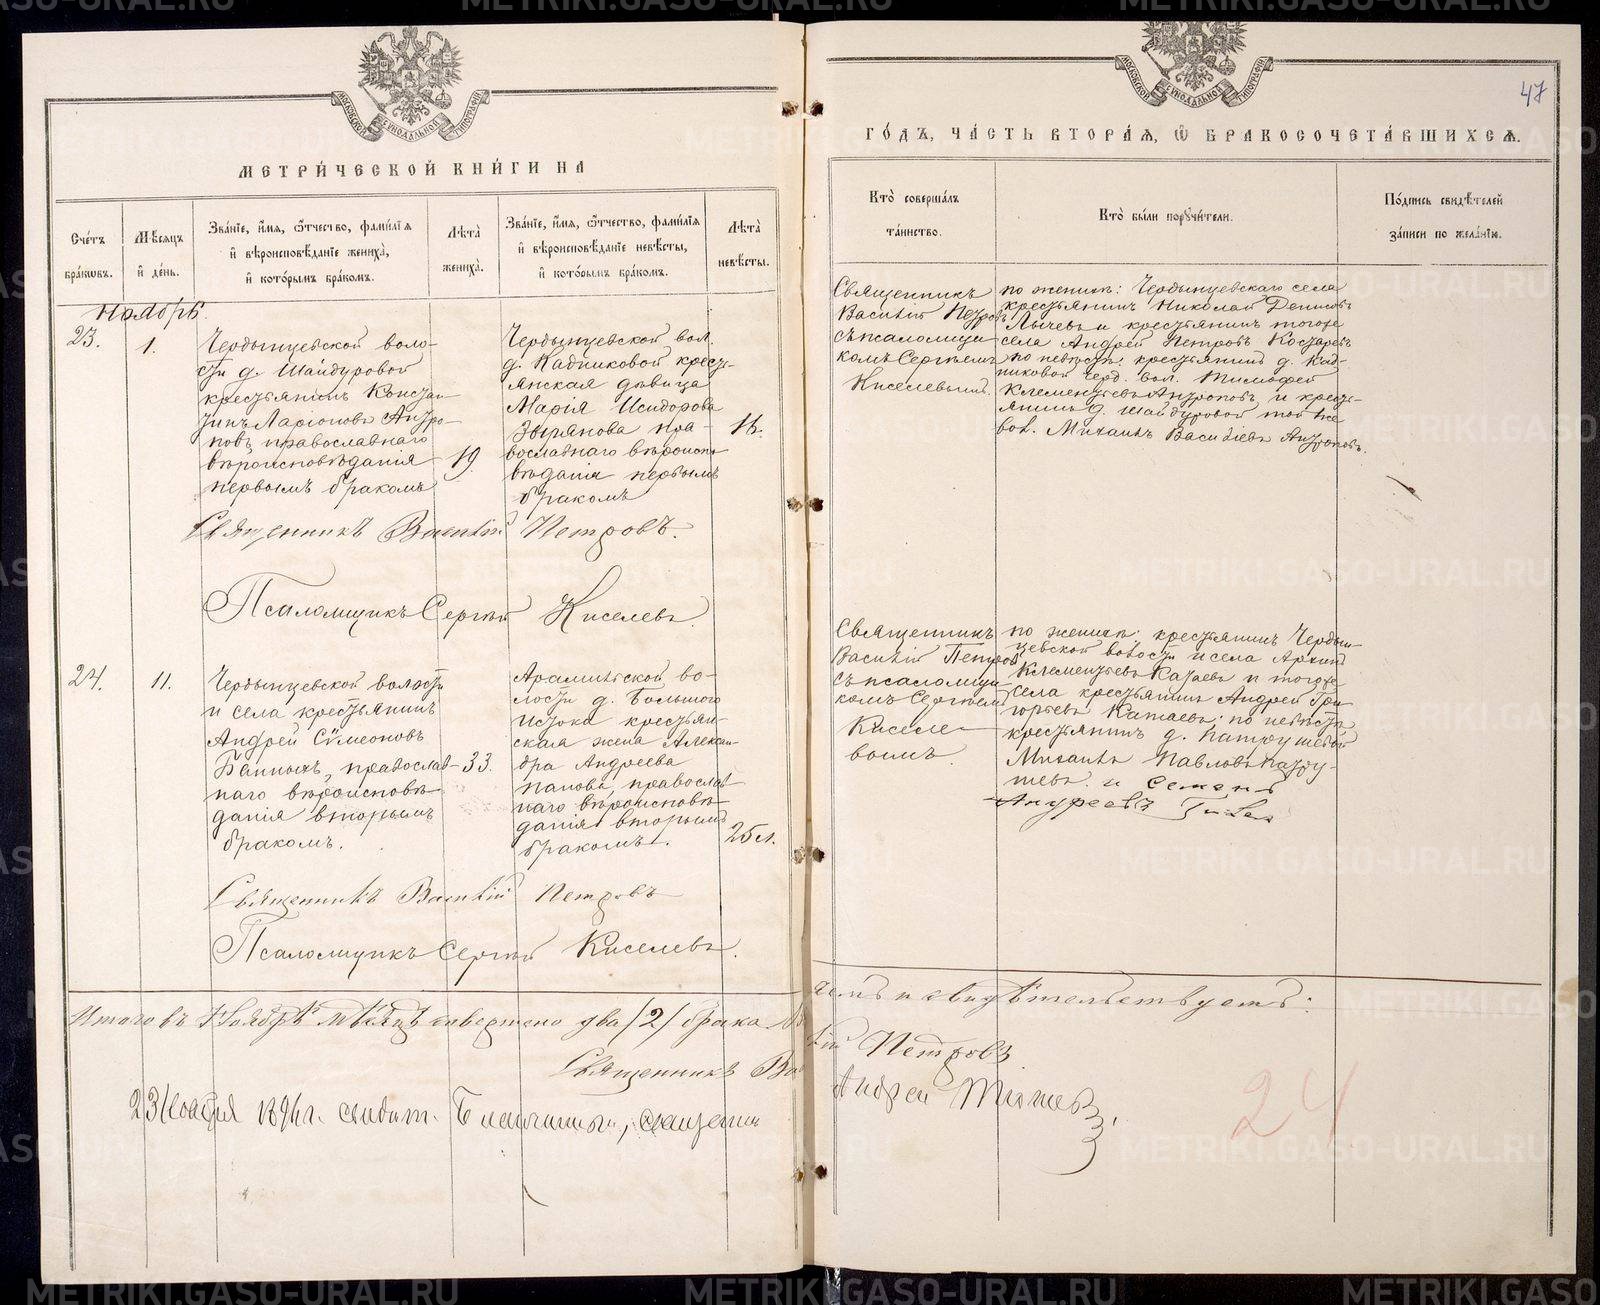 МЕТРИ́ЧЕСКОЙ КНИ́ГИ НА
ГО́ДЪ, ЧА́СТЬ ВТОРА́Я, Ѿ БРАКОСОЧЕТА́ВШИХСЯ.
47
МОСКОВСКОЙ СИНОДАЛЬНОЙ ТИПОГРАФІИ
МОСКОВСКОЙ СИНОДАЛЬНОЙ ТИПОГРАФІИ
Сче́тъ бра́ковъ.
Мѣ́сяцъ и҆ де́нь.
Зва́нїе, и҆́мя, ѻ҆́тчество, фами́лїя и҆ вѣроисповѣ́данїе жениха̀, и҆ кото́рымъ бра́комъ.
Лѣ́та жениха̀.
Зва́нїе, и҆́мя, ѻ҆́тчество, фами́лїя и҆ вѣроисповѣ́данїе невѣ́сты, и҆ кото́рымъ бра́комъ.
Лѣ́та невѣ́сты.
Кто̀ соверша́лъ та́инство.
Кто̀ бы́ли порꙋчи́тели.
По́дпись свидѣ́телей за́писи по жела́нїю.
Ноябрь.
23.
1.
Чердынцевской воло-
сти д. Шайдуровой
крестьянинъ Констан-
тинъ Ларіоновъ Антро-
повъ, православнаго
вѣроисповѣданія
первымъ бракомъ
19.
Чердынцевской вол.
д. Кадниковой кресть-
янская дѣвица
Марія Исидорова
Зырянова пра-
вославнаго вѣроиспо
вѣданія первымъ
бракомъ
16.
Священникъ
Василій Петровъ
съ псаломщи-
комъ Сергѣемъ
Киселевымъ.
по женихѣ: Чердынцевскаго села
крестьянинъ Николай Денисовъ
Лычевъ и крестьянинъ тогоже
села Андрей Петровъ Костаревъ
по невѣстѣ: крестьянинъ д. Кад-
никовой Черд. вол. Тимофей
Клементьевъ Антроповъ и кресть-
янинъ д. Шайдуровой той же
вол. Михаилъ Василіевъ Антроповъ.
Священникъ Василій Петровъ.
Псаломщикъ Сергѣй Киселевъ.
24.
11.
Чердынцевской волости
и села крестьянинъ
Андрей Сѵмеоновъ
Банныхъ, православ-
наго вѣроисповѣ
данія вторымъ
бракомъ.
33.
Арамильской во-
лости д. Большаго
истока крестьян-
ская жена Алексан-
дра Андреева
Попова, православ-
наго вѣроисповѣ
данія вторымъ
бракомъ.
25 л.
Священникъ
Василій Петровъ
съ псаломщи
комъ Сергѣемъ
Киселе-
вымъ.
по женихѣ: крестьянинъ Чердын-
цевской волости и села Архипъ
Клементьевъ Катаевъ и тогоже
села крестьянинъ Андрей Гри-
горьевъ Катаевъ; по невѣстѣ
крестьянинъ д. Патрушевой
Михаилъ Павловъ Патру-
шевъ и Семенъ
Андреевъ
Священникъ Василій Петровъ
Псаломщикъ Сергѣй Киселевъ.
Итого въ Ноябрѣ мѣсяцѣ совершено два /2/ брака. Въ чемъ и свидѣтельствуемъ:
Священникъ Василій Петровъ
23 Ноября 189 г. свидѣт. Благочинный, священникъ Андрей
24
METRIKI.GASO-URAL.RU